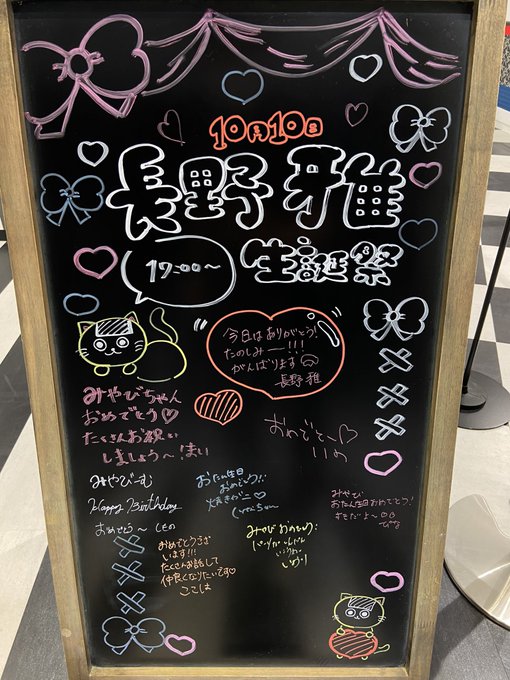 10月10日
長野 雅
17:00〜
生誕祭
今日はありがとう!
たのしみー!!!
がんばります
長野 雅
みやびちゃん
おめでとう♡
たくさんお祝い
しましょう〜! まい
おめでと〜♡
みやびーむ
Happy Birthday
おめでとう〜
お誕生日
おめでとう!!
焼きがに♡
みやび
お誕生日おめでとう!
すきだよ〜
おめでとうござ
います!!!
たくさんお話しして
仲良くなりたいです♡
ここは
みやび おめでとう!